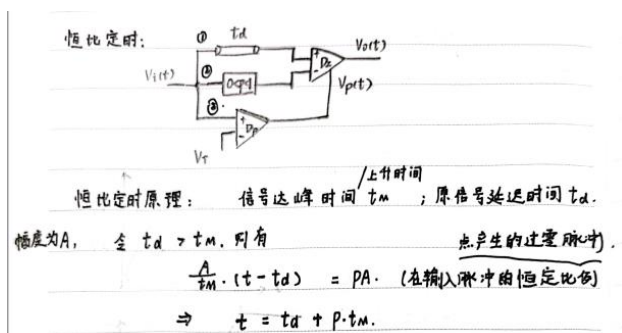 恒比定时:
① td
Vi(t) ②
③
+
-
Dz
Vo(t)
Vp(t)
+
-
Dp
VT
恒比定时原理: 信号达峰时间/上升时间 tM ; 原信号延迟时间 td.
幅度为A, 令 td > tM. 则有 点产生的过零脉冲).
A/tM · (t - td) = PA. (在输入脉冲的恒定比例
⇒ t = td + P·tM.